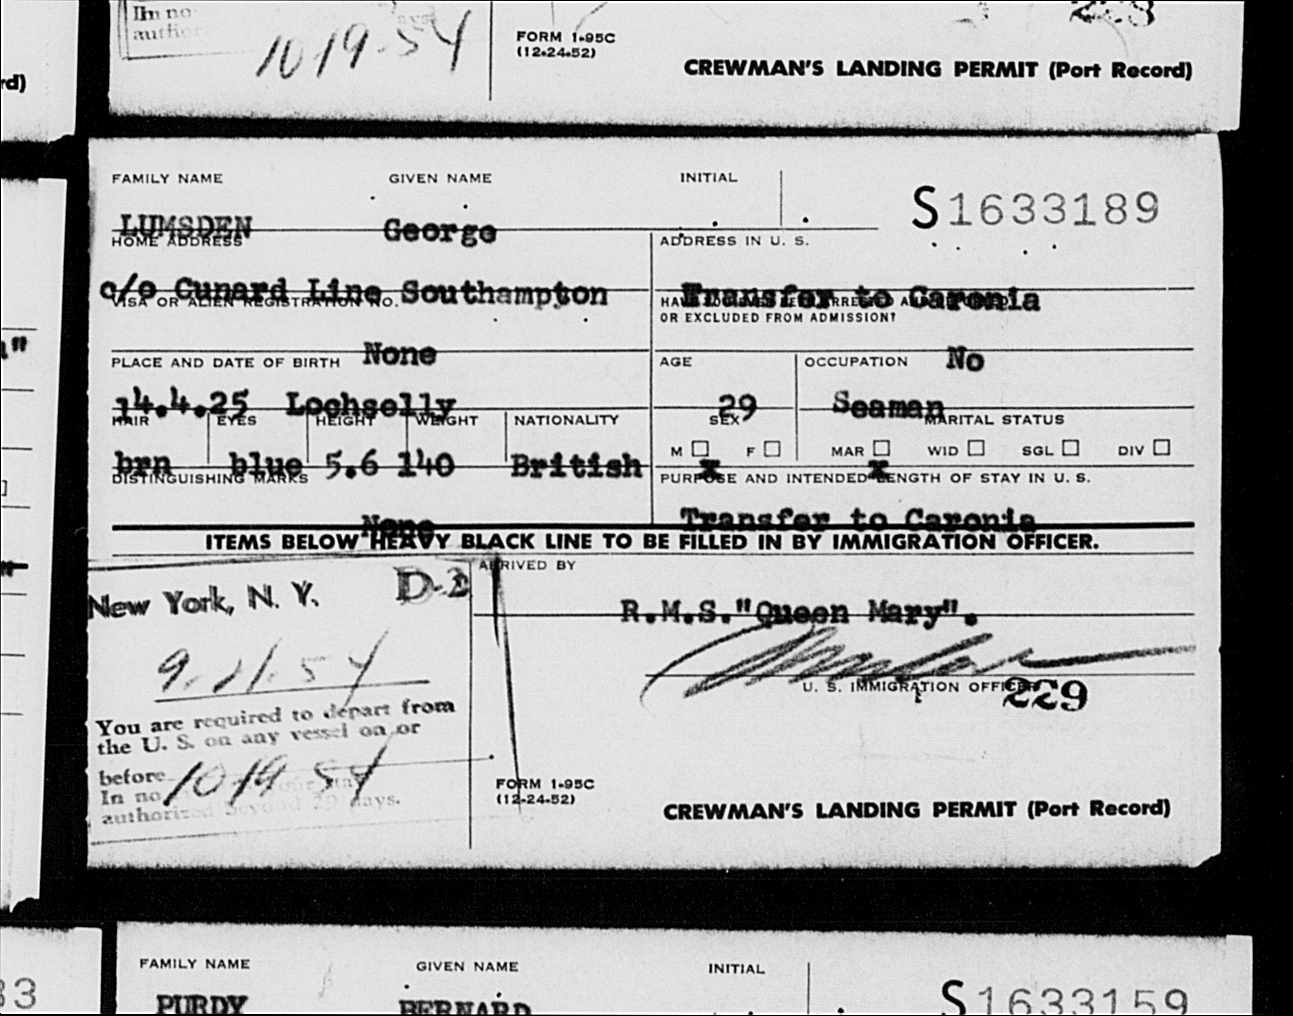 In no
autho
10-19-54
FORM 1-95C
(12-24-52)
CREWMAN'S LANDING PERMIT (Port Record)
rd)
FAMILY NAME GIVEN NAME INITIAL
S1633189
LUMSDEN George
HOME ADDRESS ADDRESS IN U. S.
c/o Cunard Line Southampton Transfer to Caronia
VISA OR ALIEN REGISTRATION NO.
OR EXCLUDED FROM ADMISSION?
None No
PLACE AND DATE OF BIRTH AGE OCCUPATION
14.4.25 Lochgelly 29 Seaman
HAIR EYES HEIGHT WEIGHT NATIONALITY SEX MARITAL STATUS
M F MAR WID SGL DIV
brn blue 5.6 140 British x x
DISTINGUISHING MARKS PURPOSE AND INTENDED LENGTH OF STAY IN U. S.
None Transfer to Caronia
ITEMS BELOW HEAVY BLACK LINE TO BE FILLED IN BY IMMIGRATION OFFICER.
ARRIVED BY
New York, N. Y. D-2
R.M.S."Queen Mary".
9-21-54
U. S. IMMIGRATION OFFICER
229
You are required to depart from
the U. S. on any vessel on or
before 10-19-54
In no
authorized beyond 29 days.
FORM 1-95C
(12-24-52)
CREWMAN'S LANDING PERMIT (Port Record)
33
FAMILY NAME GIVEN NAME INITIAL
S1633159
PURDY BERNARD